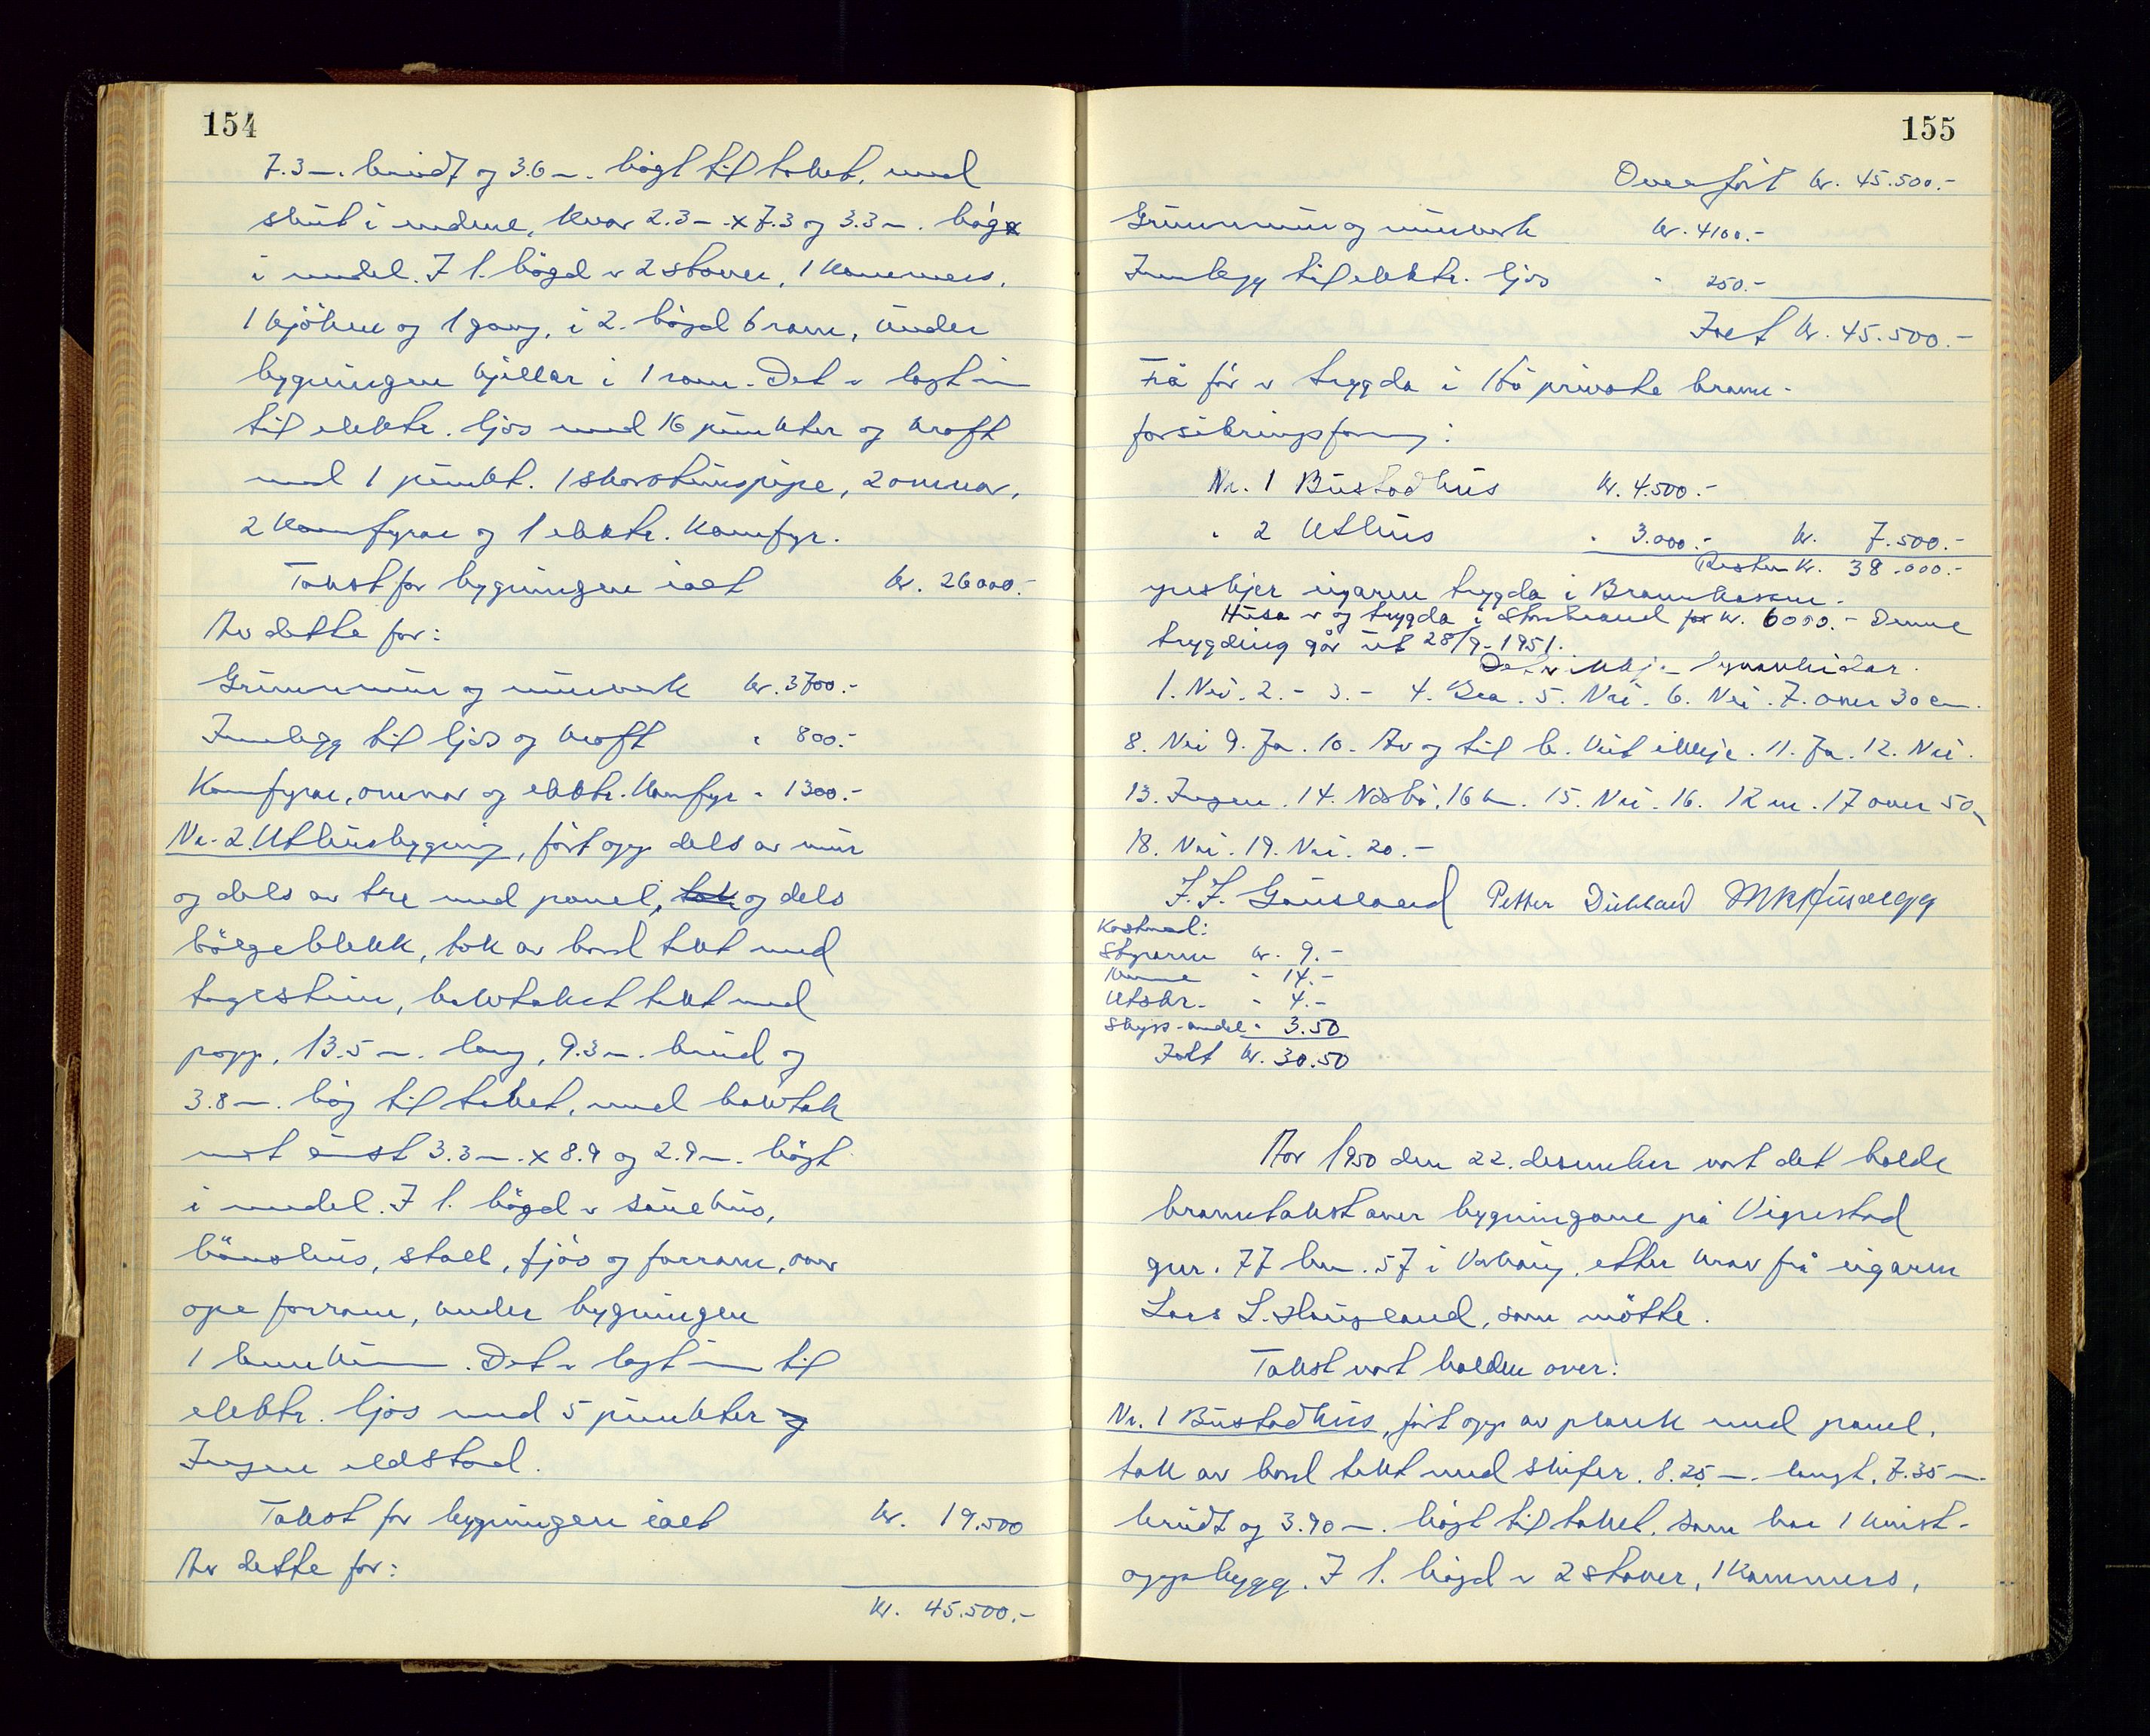 154
7.3 m. breidt og 3.6 m. högt til taket, med
skut i endene, kvar 2.3 m. x 7.3 og 3.3 m. hög
i medel. I 1. högd er 2 stover, 1 kammers,
1 kjöken og 1 gang, i 2. högd 6 rom, under
bygningen kjellar i 1 rom. Det er lagt inn
til elektr. ljos med 16 punkter og kraft
med 1 punkt. 1 skorsteinspipe, 2 omnar,
2 komfyrar og 1 elektr. komfyr.
Takst for bygningen ialt kr. 26000.-
Av dette for:
Grunnmur og murverk kr. 3700.-
Innlegg til ljos og kraft " 800.-
Komfyrar, omnar og elektr. komfyr " 1300.-
Nr. 2. Uthusbygning, fört opp dels av mur
og dels av tre med panel, tak og dels
bölgeblekk, tak av bord tekt med
teglstein, halvtaket tekt med
papp, 13.5 m. lang, 9.3 m. breid og
3.8 m. hög til taket, med halvtak
mot aust 3.3 m. x 8.9 og 2.9 m. högt
i medel. I 1. högd er sauehus,
hönsehus, stall, fjös og forrom, over
ope forrom, under bygningen
1 Det er lagt inn til
elektr. ljos med 5 punkter og
Ingen eldstad.
Takst for bygningen ialt kr. 19.500
Av dette for:
kr. 45.500.-
155
Overfört kr. 45.500.-
Grunnmur og murverk kr. 4100.-
Innlegg til elektr. ljos " 250.-
Ialt kr. 45.500.-
Frå för er trygda i to private brann-
forsikringsforeng:
Nr. 1 Bustadhus kr. 4.500.-
" 2 Uthus " 3.000.- kr. 7.500.-
Resten kr. 38.000.-
ynskjer eigaren trygda i Brannkassen.
Husa er og trygda i Storebrand for kr. 6000.- Denne
trygding går ut 28/9-1951.
Det er ikkje lynavleidar.
1. Nei. 2. - 3. - 4. Bra. 5. Nei. 6. Nei. 7. over 30 cm.
8. Nei 9. Ja. 10. Av og til b. Veit ikkje. 11. Ja. 12. Nei.
13. Ingen. 14. Næsbö, 16 km. 15. Nei. 16. 12 m. 17 over 50 m
18. Nei. 19. Nei. 20. -
J. J. Gausland Petter Dubland
Kostnad:
Styraren kr. 9.-
Menne " 14.-
Utskr. " 4.-
Skyss-andel " 3.50
Ialt kr. 30.50
Aar 1950 den 22. desember vart det holde
branntakst over bygningane på Vigrestad
gnr. 77 bnr. 57 i Varhaug, etter krav frå eigaren
Lars L. Haugland, som mötte.
Takst vart halden over:
Nr. 1 Bustadhus, fört opp av plank med panel,
tak av bord tekt med skifer, 8.25 m. langt, 7.35 m.
breidt og 3.90 m. högt til taket, som har 1 kvist-
oppbygg. I 1. högd er 2 stover, 1 kammers,